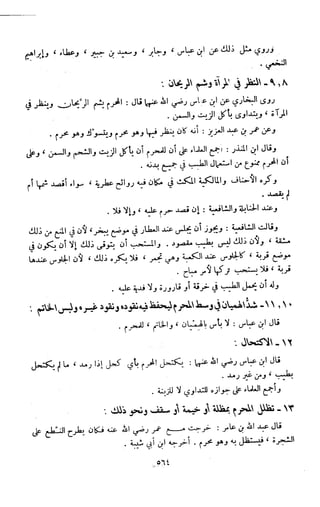 وروي مثل ذلك عن ابن عباس ، وجابر ، وسعيد بن جبير ، وعطاء ، وإبراهيم
النخعي .
٨ ، ٩ - النظر في المرآة وشم الريحان :
روى البخاري عن ابن عباس رضي الله عنهما قال : المحرم يشم الريحان وينظر في
المرآة ، ويتداوى بأكل الزيت والسمن .
وعن عمر بن عبد العزيز : أنه كان ينظر فيها وهو محرم ويتسوك وهو محرم .
وقال ابن المنذر : أجمع العلماء على أن للمحرم أن يأكل الزيت والشحم والسمن ، وعلى
أن المحرم ممنوع من استعمال الطيب في جميع بدنه .
وكره الأحناف والمالكية المكث في مكان فيه روائح عطرية ، سواء أقصد شمها أم
لم يقصد .
وعند الحنابلة والشافعية : إن قصد حرم عليه ، وإلا فلا .
وقالت الشافعية : ويجوز أن يجلس عند العطار في موضع يبخر ، لأن في المنع من ذلك
مشقة ، ولأن ذلك ليس بطيب مقصود . والمستحب أن يتوقى ذلك إلا أن يكون في
موضع قربة ، كالجلوس عند الكعبة وهي تجمر ، فلا يكره ذلك ، لأن الجلوس عندها
قربة ، فلا يستحب تركها لأمر مباح .
وله أن يحمل الطيب في خرقة أو قارورة ولا فدية عليه .
١٠ ، ١١ - شد الهميان في وسط المحرم ليحفظ فيه نقوده ونقود غيره ولبس الخاتم :
قال ابن عباس : لا بأس بالهميان ، والخاتم ، للمحرم .
١٢ - الاكتحال :
قال ابن عباس رضي الله عنهما : يكتحل المحرم بأي كحل إذا رمد ، ما لم يكتحل
بطيب ، ومن غير رمد .
وأجمع العلماء على جوازه للتداوي لا للزينة .
١٣ - تظلل المحرم بمظلة أو خيمة أو سقف ونحو ذلك :
قال عبد الله بن عامر : خرجت مع عمر رضي الله عنه فكان يطرح النطع على
الشجرة ، فيستظل به وهو محرم . أخرجه ابن أبي شيبة .
٥٦٤